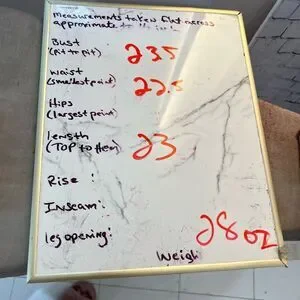 Measurements taken flat across
approximate to the
Bust
(pit to pit) 23.5
Waist
(smallest point) 22.5
Hips
(largest point)
Length
(TOP to Hem) 23
Rise :
Inseam:
leg opening:
28 oz
Weigh